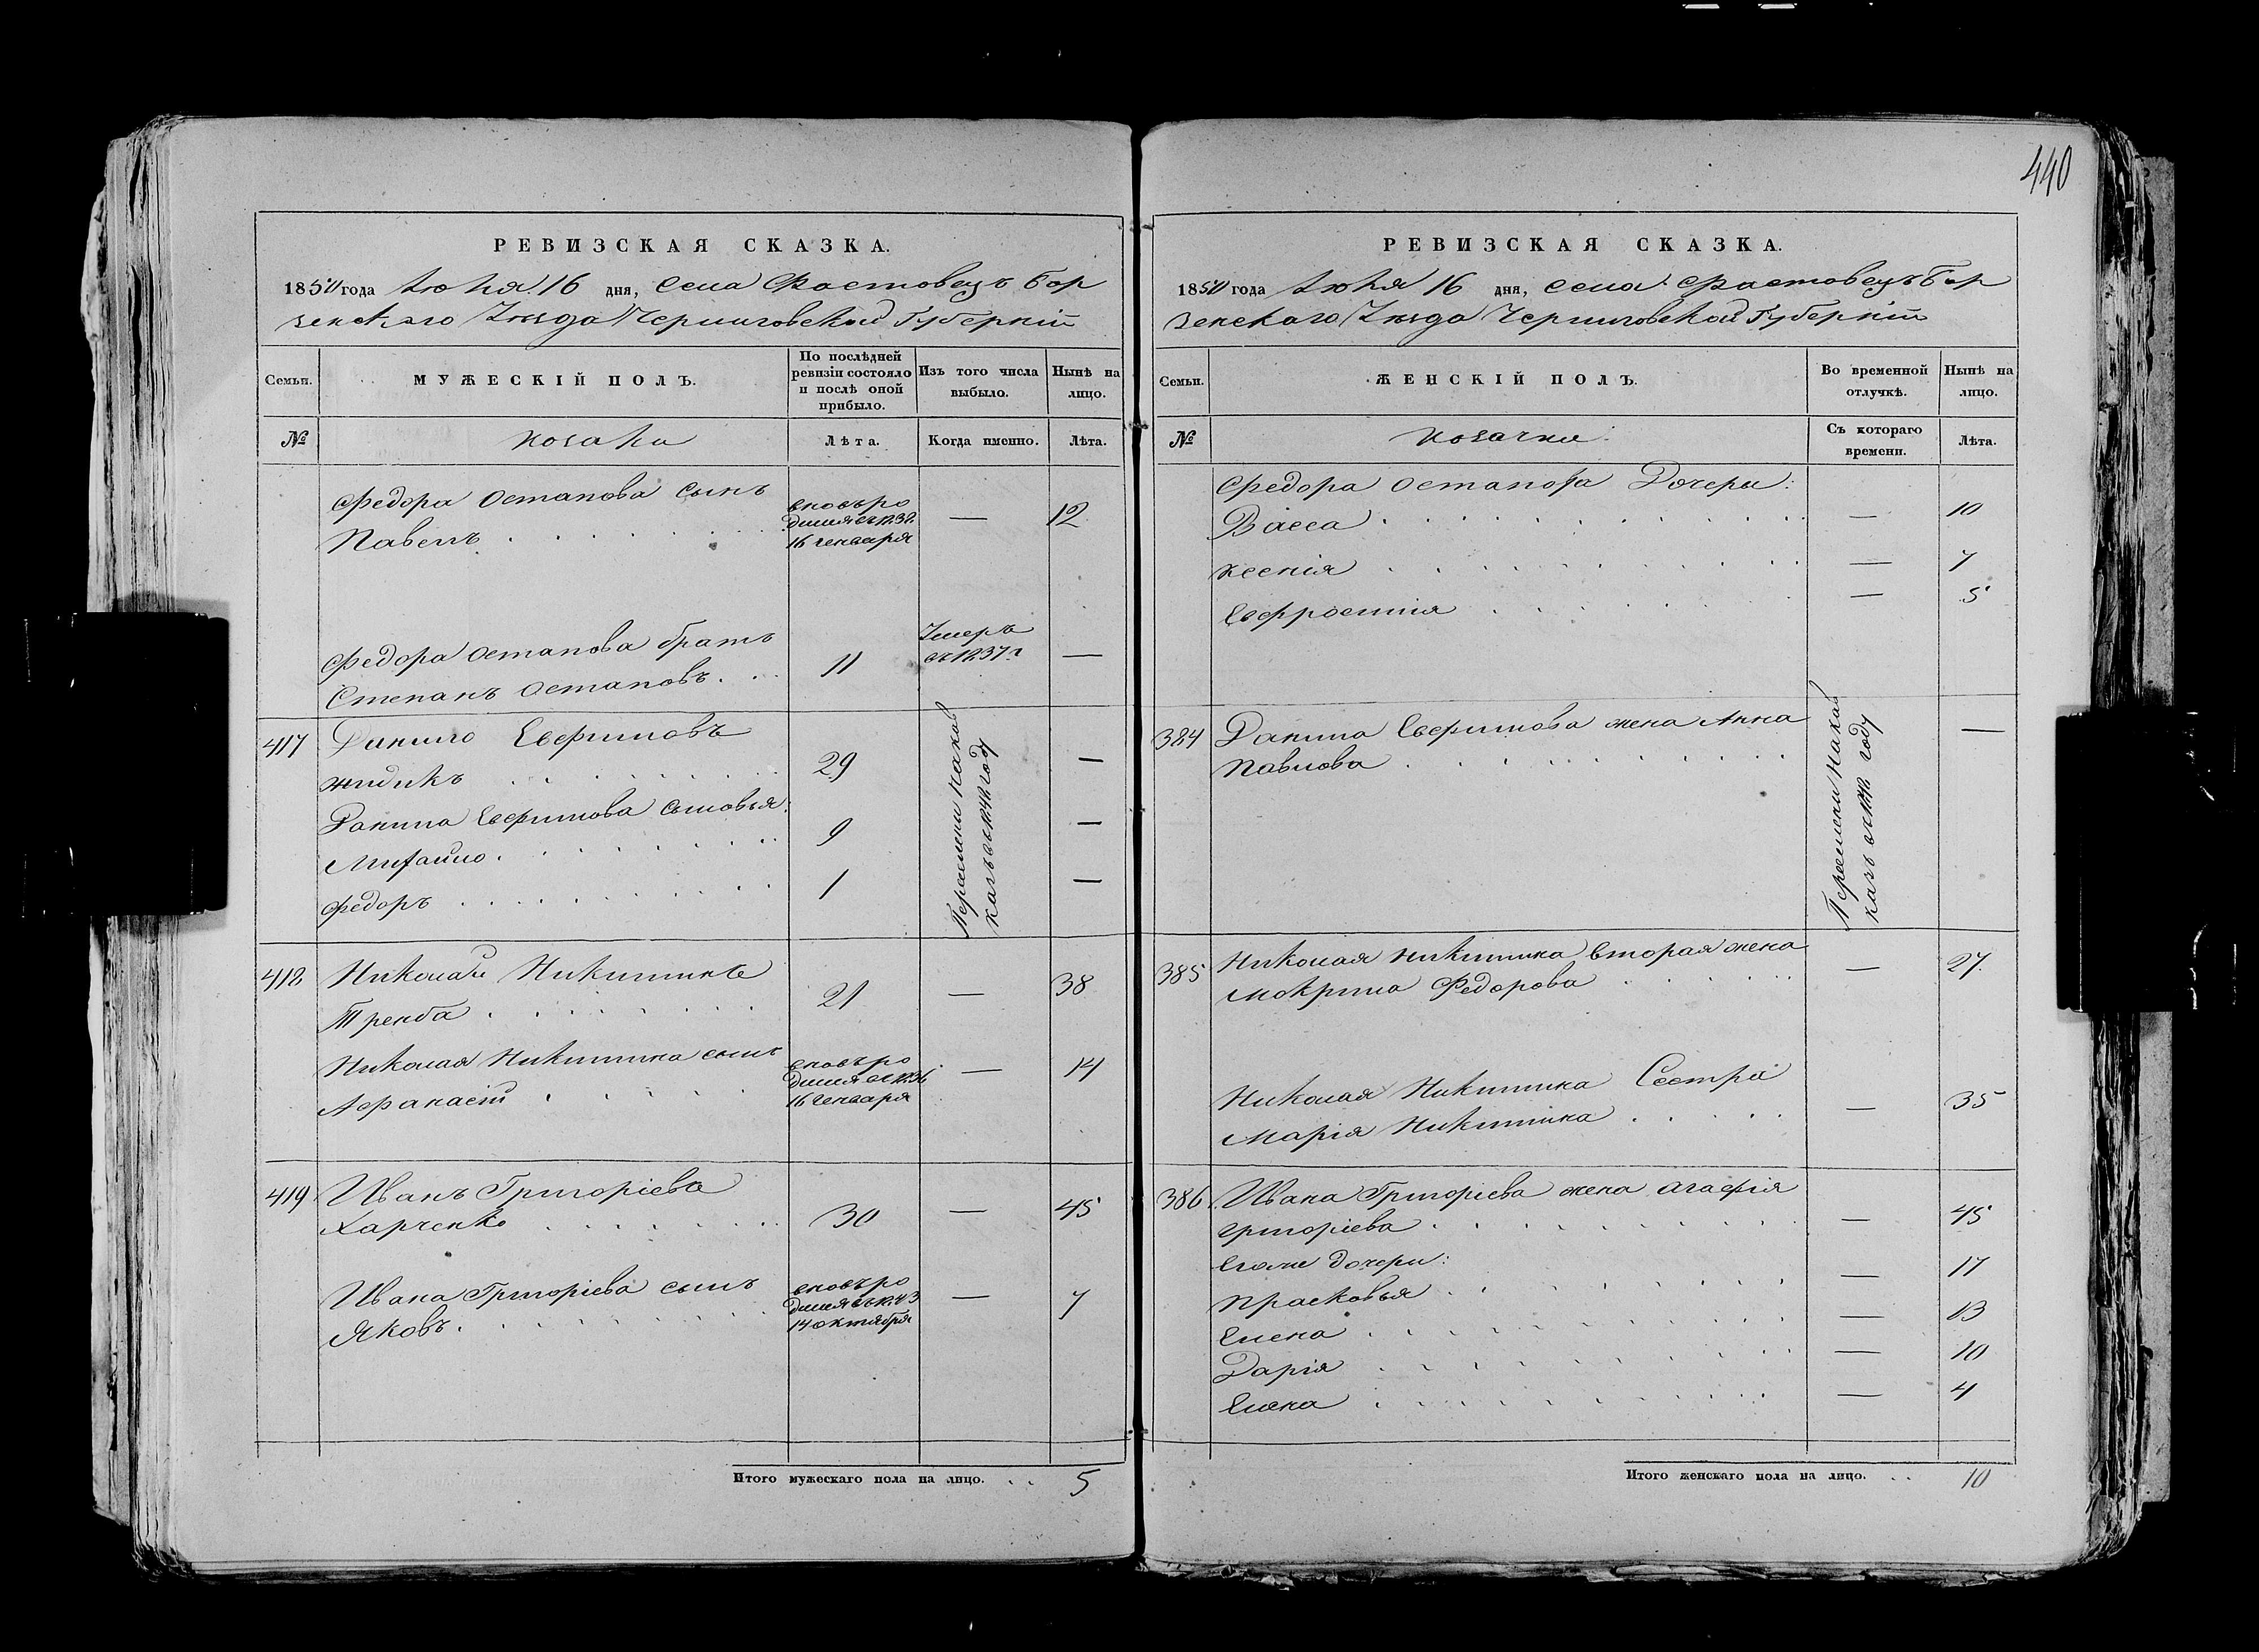 440
РЕВИЗСКАЯ СКАЗКА.
1850 года Июня 16 дня, Села Фастовецъ Бор
зенскаго Уѣзда Черниговской Губерніи
Семьи.
МУЖЕСКІЙ ПОЛЪ.
По послѣдней ревизіи состояло и послѣ оной прибыло.
Изъ того числа выбыло.
Нынѣ на лицо.
№
козаки
Лѣта.
Когда именно.
Лѣта.
Федора Остапова сынъ
Павелъ
вновьро
16 генваря
—
12
Федора Остапова братъ
Степанъ Остаповъ
11
Умеръ
въ 1837 г
—
417
Данило Евфимовъ
Жидикъ
29
—
Данила Евфимова сыновья:
Михайло
9
—
Федоръ
1
—
418
Николай Никитинъ
Треба
21
—
38
Николая Никитина сынъ
Афанасій
вновьро
16 Генваря
—
14
419
Иванъ Григоріевъ
Харченко
30
—
45
Ивана Григоріева сынъ
Яковъ
вновьро
14 октября
—
7
Итого мужескаго пола на лицо. . . 5
РЕВИЗСКАЯ СКАЗКА.
1850 года Июня 16 дня, Села Фастовецъ Бор
зенскаго Уѣзда Черниговской Губерніи
Семьи.
ЖЕНСКІЙ ПОЛЪ.
Во временной отлучкѣ.
Нынѣ на лицо.
№
козачки
Съ котораго времени.
Лѣта.
Федора Остапова Дочери:
Васса
—
10
Ксенія
—
7
Евфросинія
—
5
384
Данила Евфимова жена Анна
Павлова
—
385
Николая Никитина вторая жена
Мокрина Федорова
—
27
Николая Никитина Сестра
Марія Никитина
—
35
386
Ивана Григоріева жена Агафія
Григоріева
—
45
Егоже дочери:
Прасковья
—
17
Елена
—
13
Дарія
—
10
Елена
—
4
Итого женскаго пола на лицо. . . 10